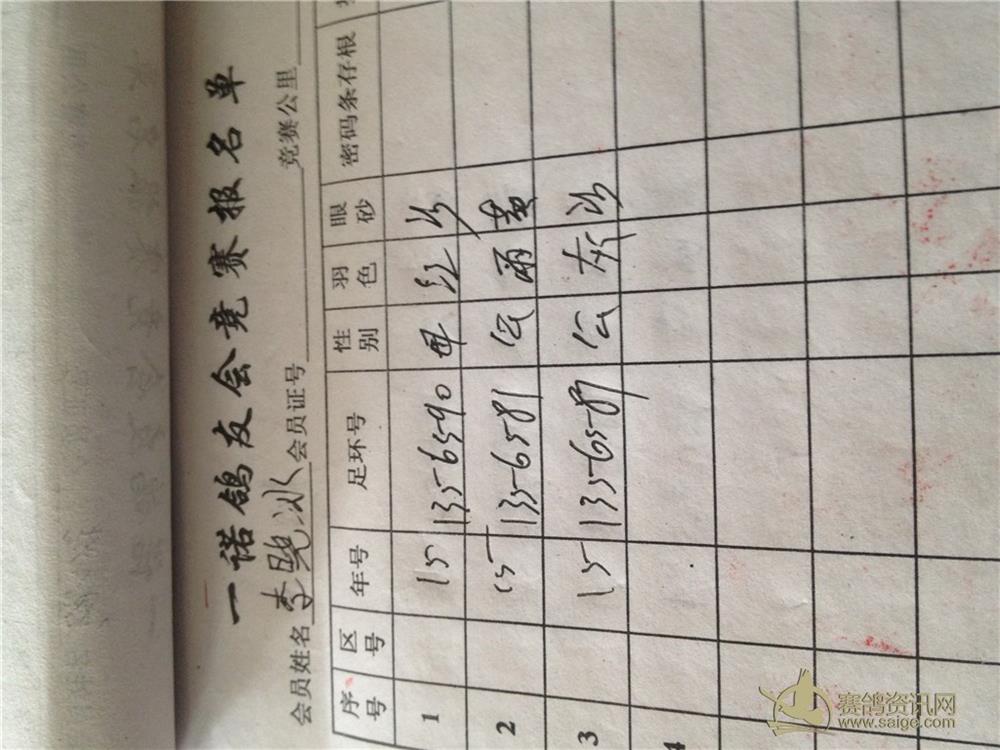 一诺鸽友会竞赛报名单
会员姓名 李晓冰 会员证号 竞赛公里
序号 区号 年号 足环号 性别 羽色 眼砂 密码条存根
1 15 135-6590 母 红 沙
2 15 135-6581 公 雨 黄
3 15 135-6589 公 灰 沙
4
赛鸽资讯网
www.saige.com